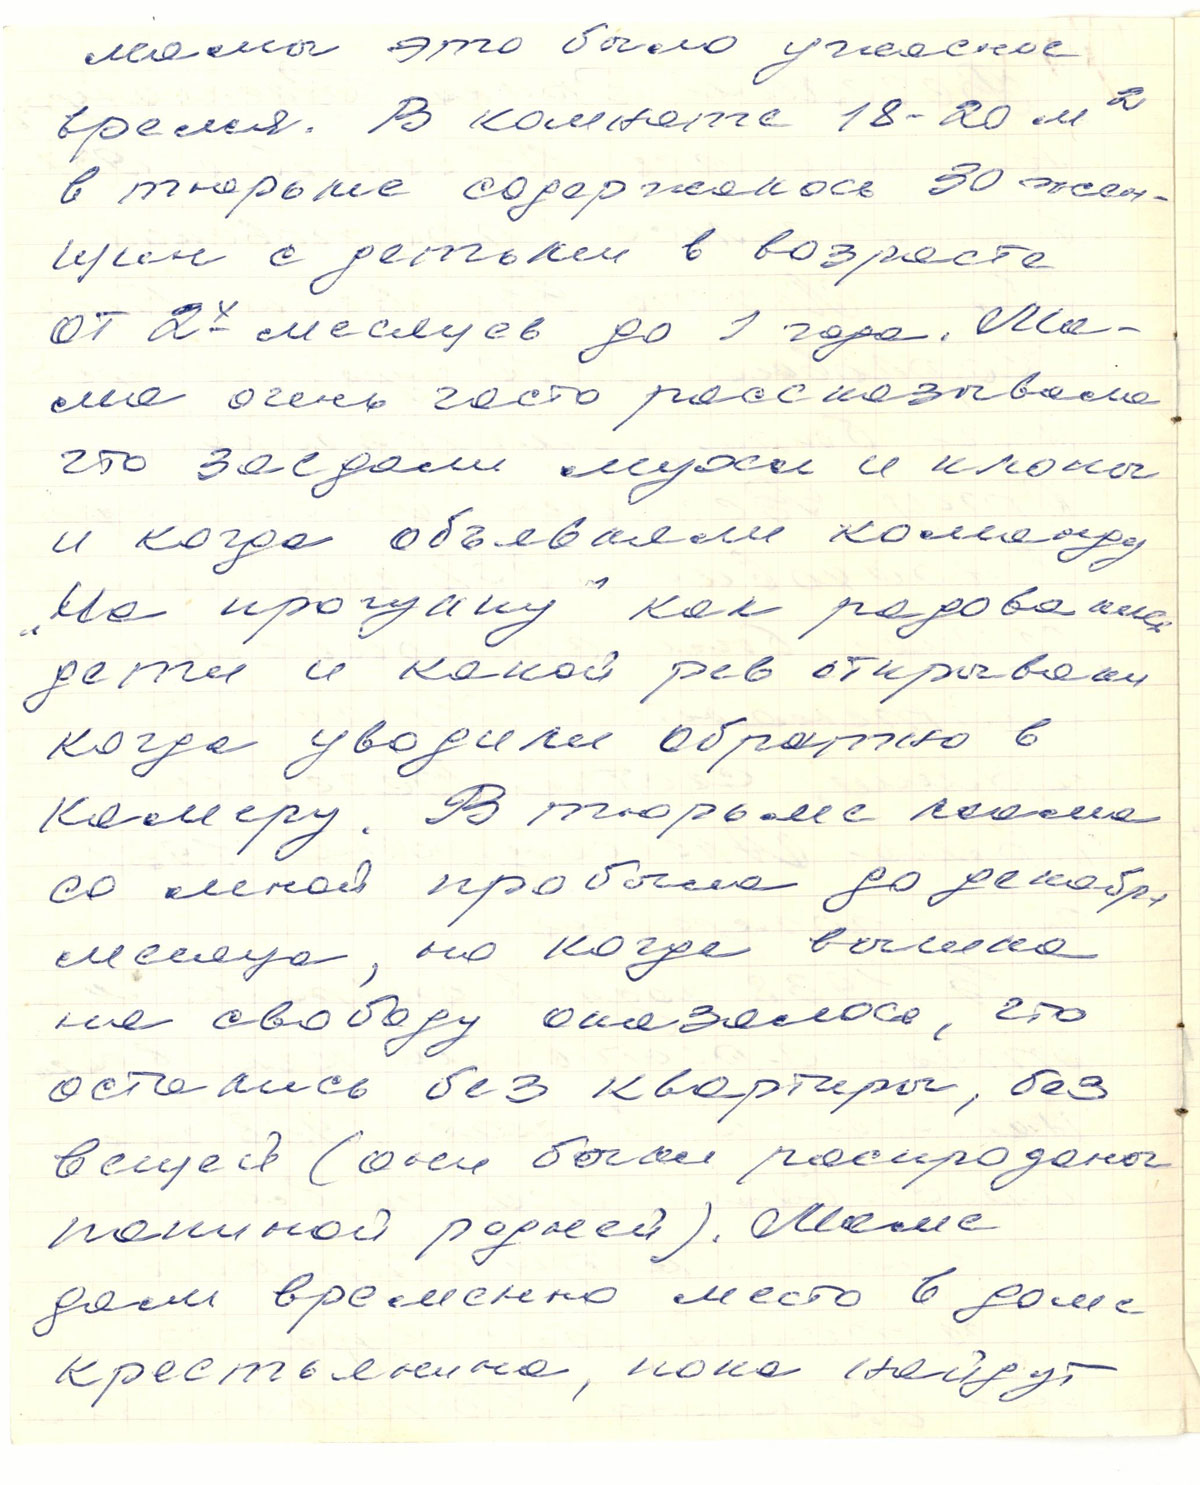 мамы это было ужасное
время. В комнате 18-20 м²
в тюрьме содержалось 30 жен-
щин с детьми в возрасте
от 2х месяцев до 1 года. Ма-
ма очень часто рассказывала
что заедали мухи и клопы
и когда объявляли команду
„На прогулку" как радовались
дети и какой рев открывали
когда уводили обратно в
камеру. В тюрьме мама
со мной пробыла до декабря
месяца, но когда вышла
на свободу оказалось, что
остались без квартиры, без
вещей (они были распроданы
папиной родней). Маме
дали временно место в доме
крестьянина, пока найдут